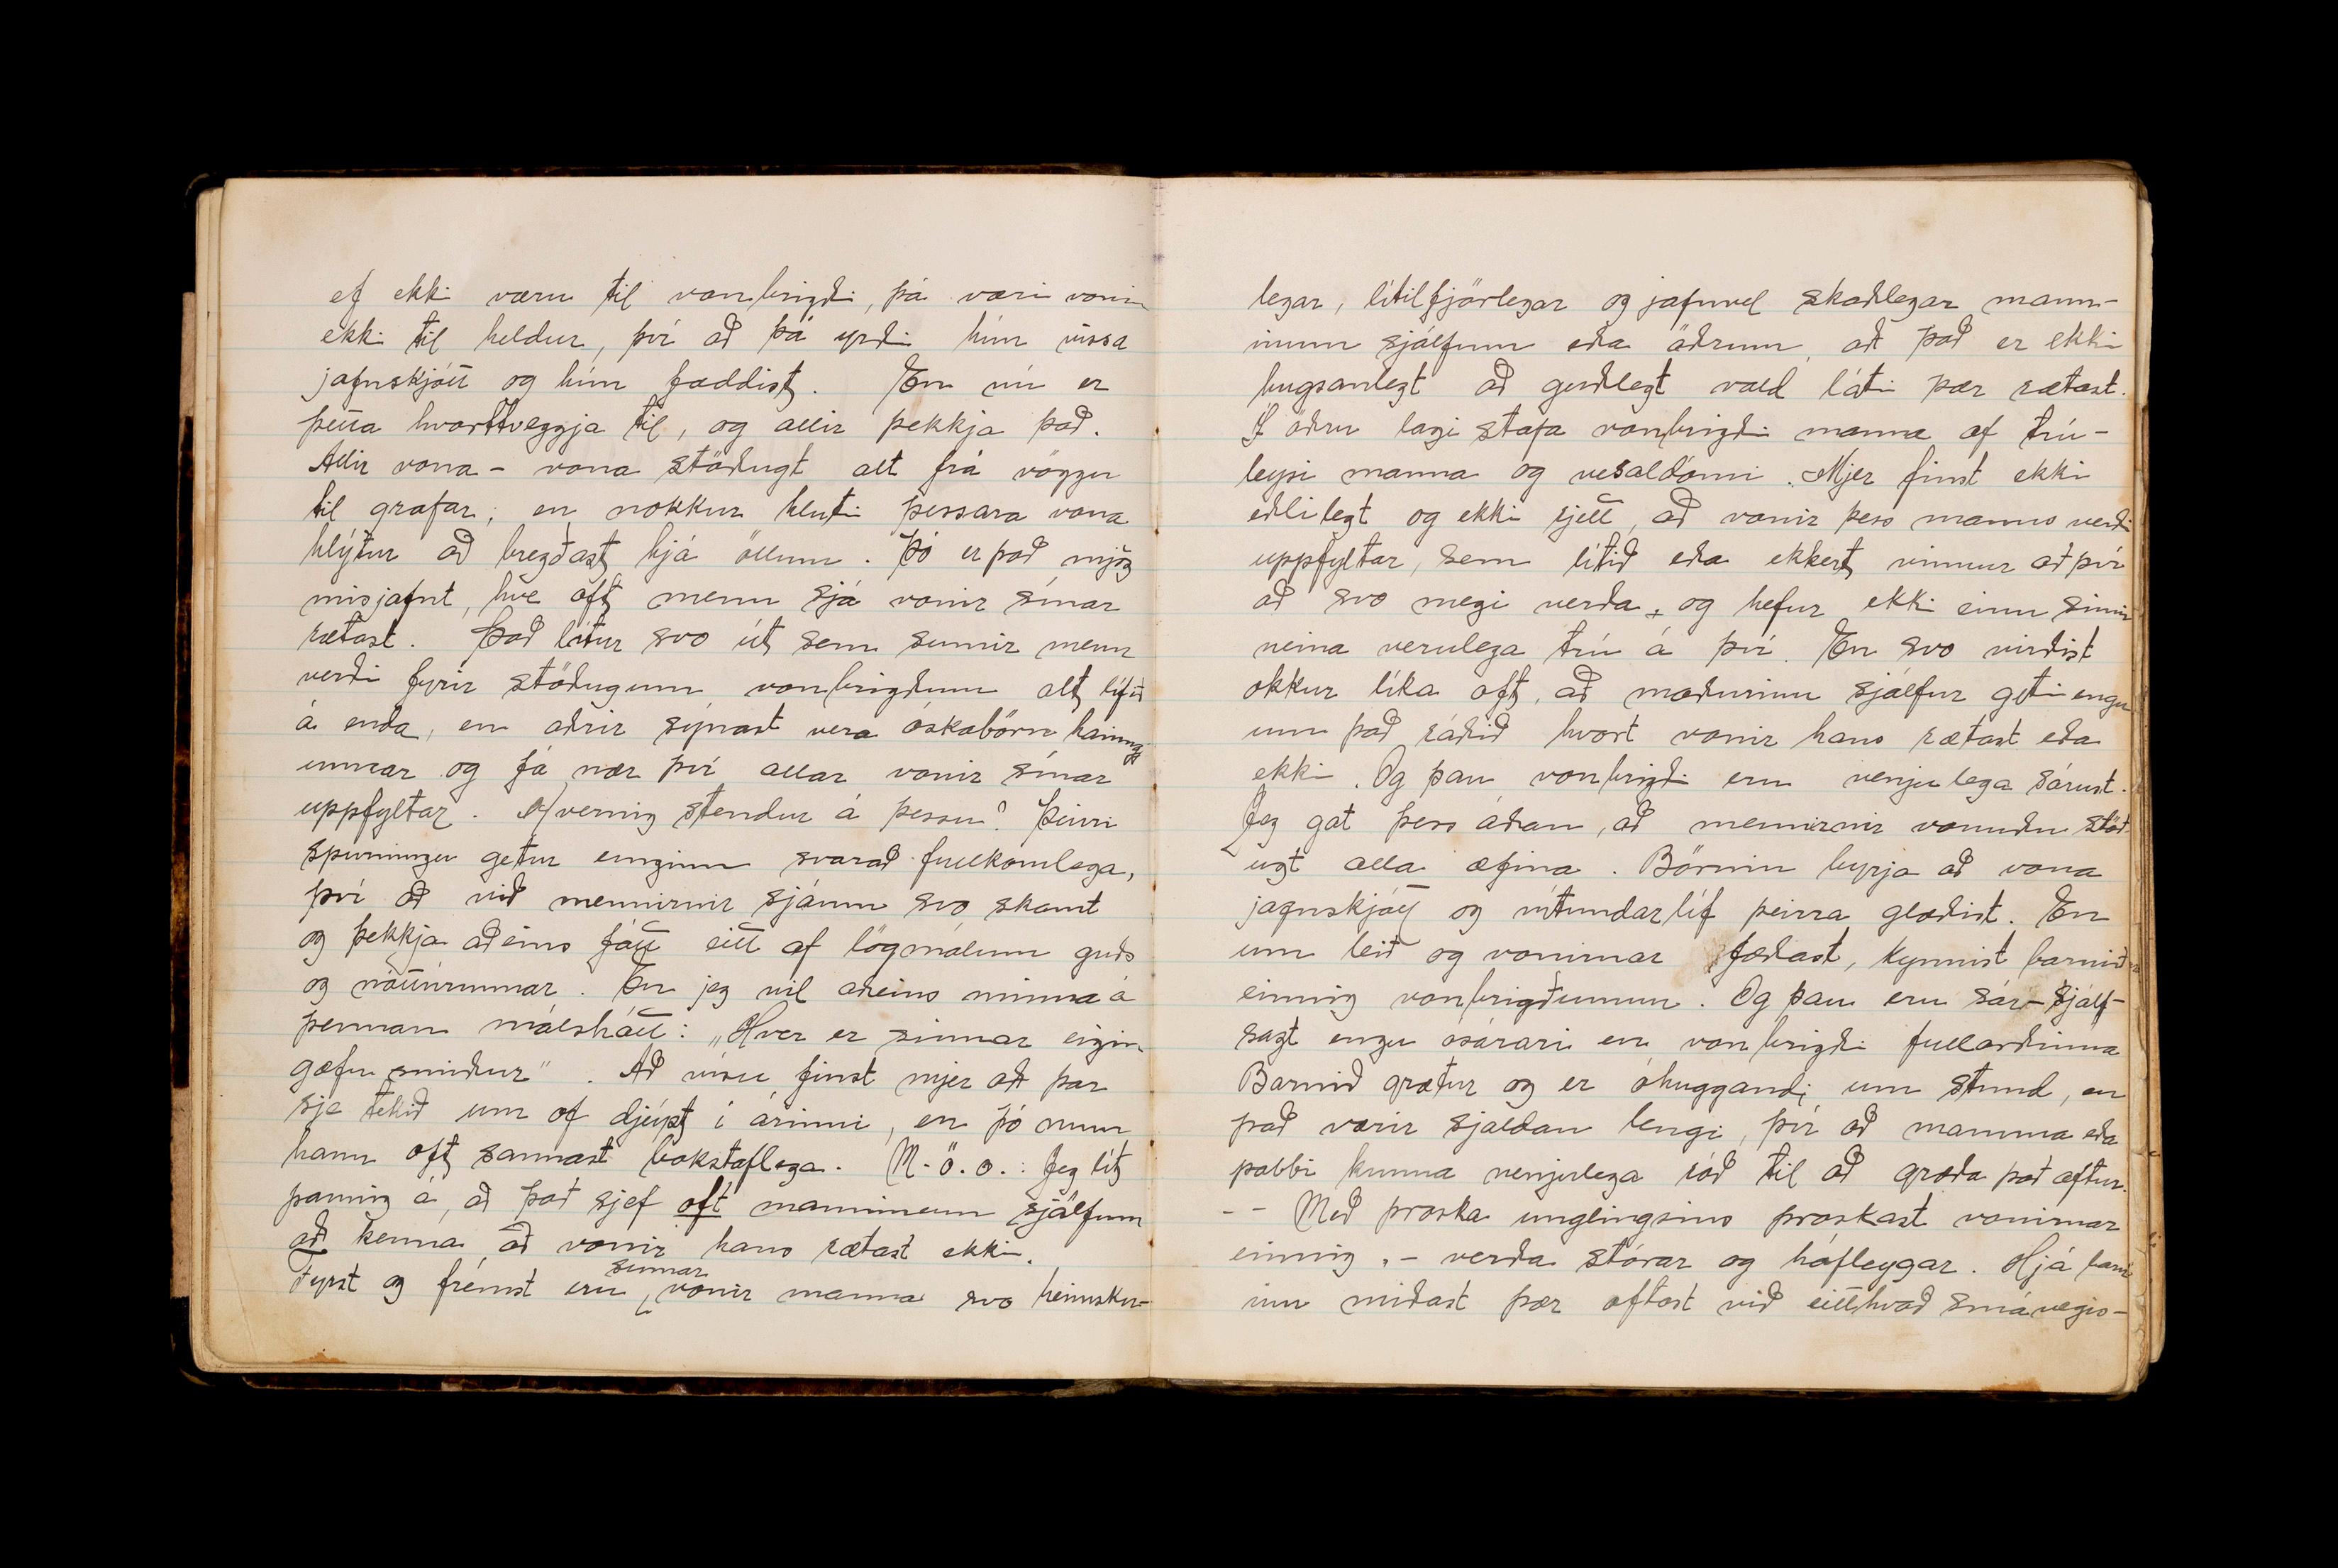 ef ekki væru til vonbrigði, þá væri vonin
ekki til heldur, því að þá yrði hún vissa
jafnskjótt og hún fæddist. En nú er
þetta hvorttveggja til, og allir þekkja það.
Allir vona - vona stöðugt alt frá vöggu
til grafar, en nokkur hluti þessara vona
hlýtur að bregðast hjá öllum. Þó er það mjög
misjafnt, hve oft menn sjá vonir sínar
rætast. Það lítur svo út sem sumir menn
verði fyrir stöðugum vonbrigðum alt lífið
á enda, en aðrir sýnast vera óskabörn hamingj
unnar og fá nær því allar vonir sínar
uppfyltar. Hvernig stendur á þessu? Þeirri
spurningu getur enginn svarað fullkomlega,
því að við mennirnir sjáum svo skamt
og þekkja aðeins fátt eitt af lögmálum guðs
og náttúrunnar. En jeg vil aðeins minna á
þennan málshátt: „Hver er sinnar eigin
gæfu smiður". Að vísu finst mjer að þar
sje tekið um of djúpt í árinni, en þó mun
hann oft sannast bókstaflega. M.ö.o.: Jeg lít
þannig á, að það sjef oft manninum sjálfum
að kenna að vonir hans rætast ekki.
Fyrst og fremst eru sumar vonir manna svo heimsku-
legar, lítilfjörlegar og jafnvel skaðlegar mann-
inum sjálfum eða öðrum, að það er ekki
hugsanlegt að guðlegt vald láti þær rætast.
Í öðru lagi stafa vonbrigði manna af trú-
leysi manna og vesaldómi. Mjer finst ekki
eðlilegt og ekki rjett, að vonir þess manns verði
uppfyltar, sem lítið eða ekkert vinnur að því
að svo megi verða, og hefur ekki einu sinni
neina verulega trú á því. En svo virðist
okkur líka oft, að maðurinn sjálfur geti engu
um það ráðið hvort vonir hans rætast eða
ekki. Og þau vonbrigði eru venjulega sárust.
Jeg gat þess áðan, að mennirnir vonuðu stöð
ugt alla æfina. Börnin byrja að vona
jafnskjótt og vitundarlíf þeirra glæðist. En
um leið og vonirnar fæðast, kynnist barnið
einnig vonbrigðunum. Og þau eru sár - sjálf-
sagt engu ósárari en vonbrigði fullorðinna
Barnið grætur og er óhuggandi um stund, en
það varir sjaldan lengi, því að mamma eða
pabbi kunna venjulega ráð til að græða það aftur.
-- Með þroska unglingsins þroskast vonirnar
einnig, - verða stórar og háfleygar. Hjá barn
inu miðast þær oftast við eitthvað smávegis-